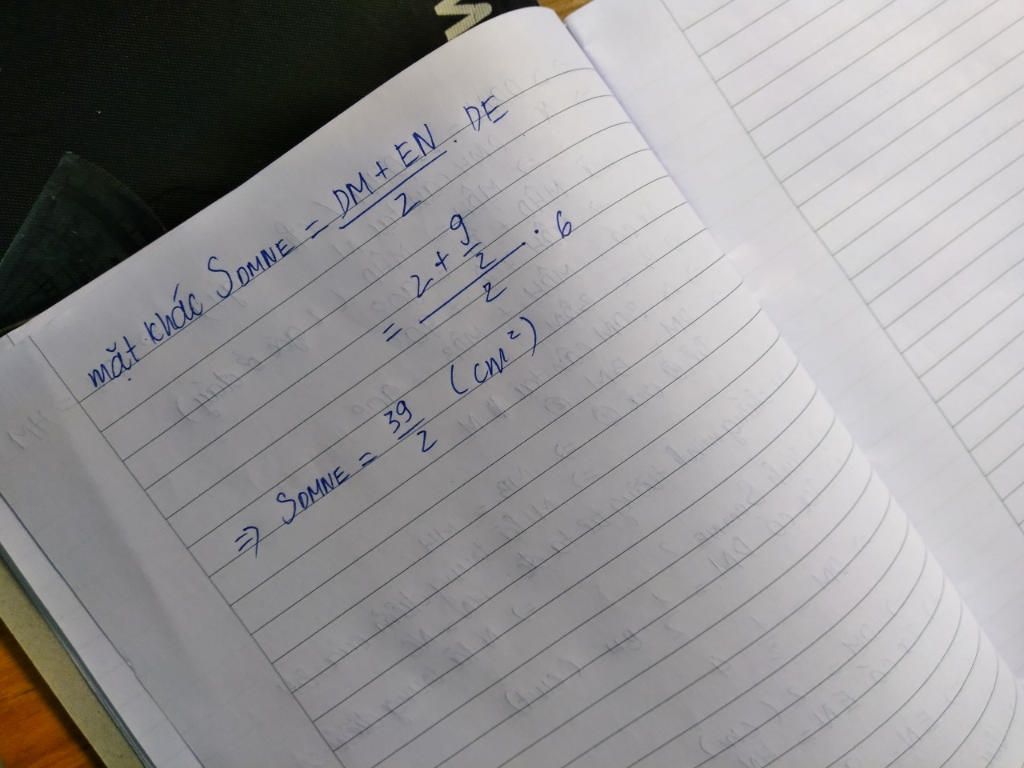 mặt khác SDMNE = (DM + EN)/2 . DE
= (2 + 9/2)/2 . 6
=> SDMNE = 39/2 (cm²)